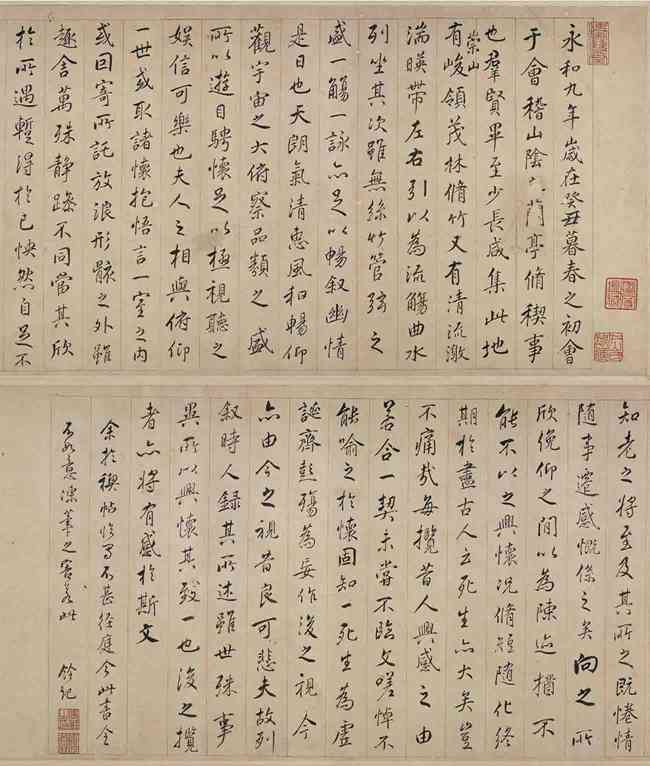 永和九年歲在癸丑暮春之初會
于會稽山陰之蘭亭脩稧事
也羣賢畢至少長咸集此地
崇山
有峻領茂林脩竹又有清流激
湍暎帶左右引以為流觴曲水
列坐其次雖無絲竹管弦之
盛一觴一詠亦足以暢叙幽情
是日也天朗氣清惠風和暢仰
觀宇宙之大俯察品類之盛
所以遊目騁懷足以極視聽之
娛信可樂也夫人之相與俯仰
一世或取諸懷抱悟言一室之內
或因寄所託放浪形骸之外雖
趣舍萬殊静躁不同當其欣
於所遇暫得於己怏然自足不
知老之將至及其所之既惓情
隨事遷感慨係之矣向之所
欣俛仰之閒以為陳迹猶不
能不以之興懷況脩短隨化終
期於盡古人云死生亦大矣豈
不痛哉每攬昔人興感之由
若合一契未嘗不臨文嗟悼不
能喻之於懷固知一死生為虛
誕齊彭殤為妄作後之視今
亦由今之視昔良可悲夫故列
叙時人錄其所述雖世殊事
異所以興懷其致一也後之攬
者亦將有感於斯文
余於稧帖臨寫不甚径庭今此書全
不如意筆之害若此